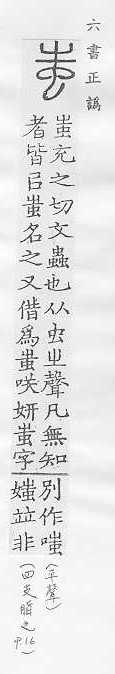 六書正譌
蚩
蚩充之切文蟲也从虫㞢聲凡無知
者皆㠯蚩名之又借爲蚩咲妍蚩字
別作嗤
媸竝非
(平聲)
(四支脂之 p.16)